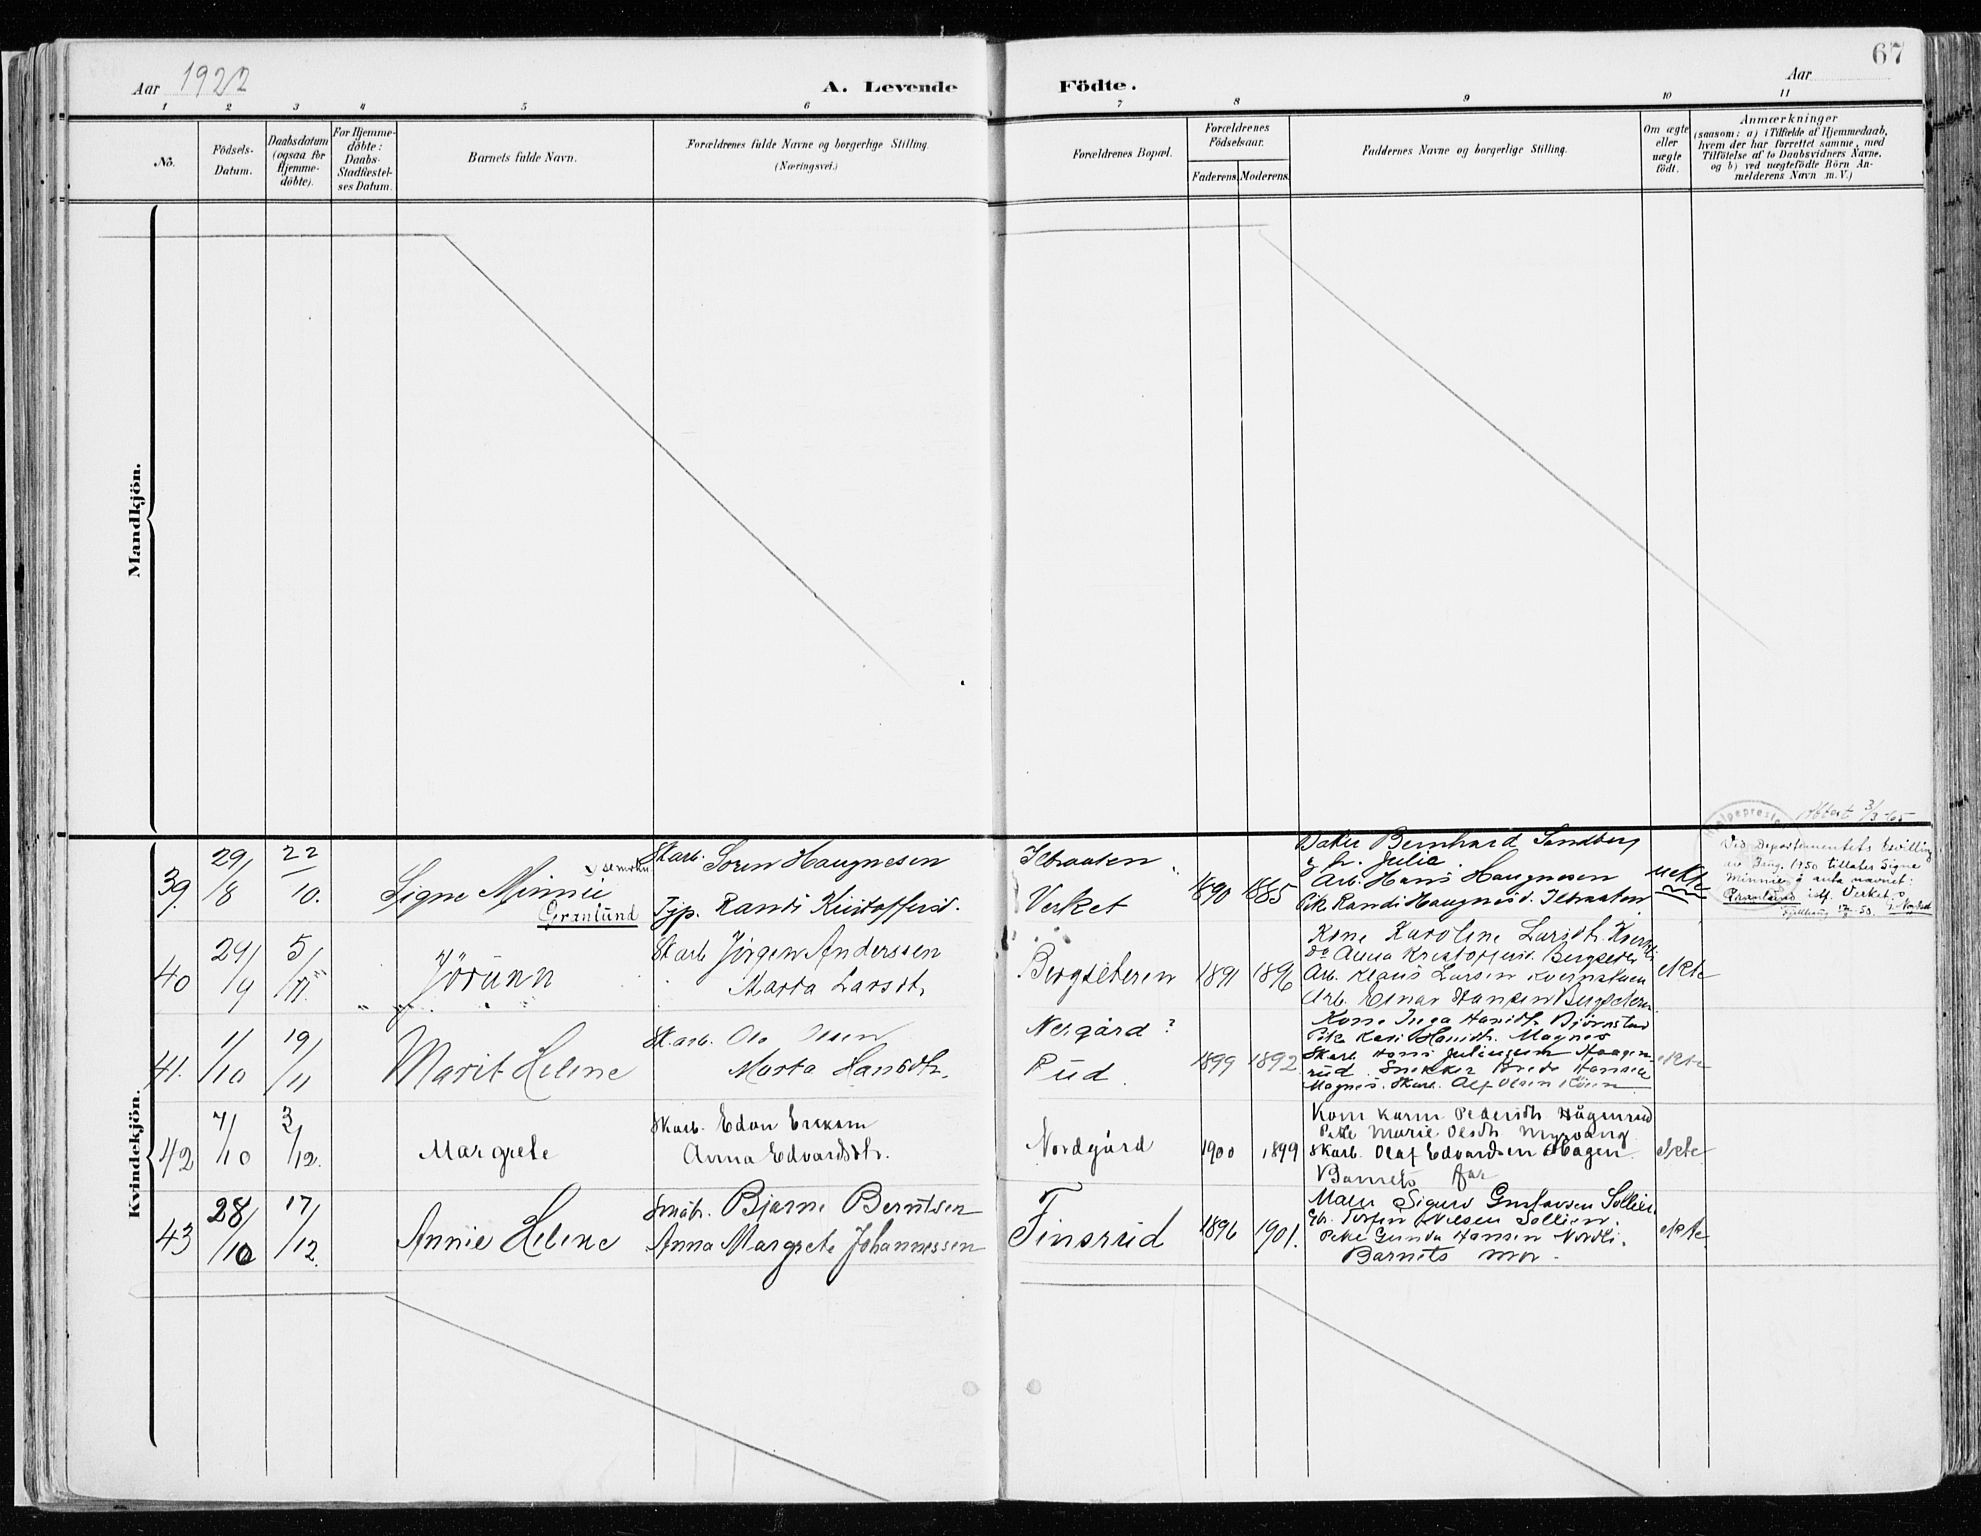 67
Aar 1922
A. Levende
Födte.
Aar
1 2 3 4 5 6 7 8 9 10 11
Nö.
Födsels-
Datum.
Daabsdatum
(ogsaa for
Hjemme-
döbte).
For Hjemme-
döbte:
Daabs-
Stadfæstel-
ses Datum.
Barnets fulde Navn.
Forældrenes fulde Navne og borgerlige Stilling.
(Næringsvei.)
Forældrenes Bopæl.
Forældrenes
Födselsaar.
Faderens. Moderens.
Faddernes Navne og borgerlige Stilling.
Om ægte
eller
uægte
födt.
Anmærkninger
(saasom: a) i Tilfælde af Hjemmedaab,
hvem der har forrettet samme, med
Tilföielse af to Daabsvidners Navne,
og b) ved uægtefödte Börn An-
melderens Navn m. V.)
Mandkjön.
Kvindekjön.
39. 29/8 22/10.
Signe Minnie
Granlund
Skarb. Soren Haugnesen
Tjp. Randi Kristoffersd.
Verket
1890 1885
Bernhard Sandberg
Julia
Arb. Hans Haugnesen
Pike Randi Haugnesd.
uekte
Ved Departementets bevilling
av Aug. 1950 tillates Signe
Minnie å anta navnet:
Granlund istf. Verket
40 29/9 5/11.
Jörunn
Skarb Jörgen Anderssen
Marta Larsdt.
Bergseteren
1891 1896
Kone Karoline Larsdt.
do Anna Kristoffersd. Bergseter
Arb. Klaus Larsen
Arb. Einar Hansen Bergseteren
ekte
41. 1/10 19/11
Marit Helene
Skarb. Ole Olsen
Marta Hansdtr.
Nergård?
Rud.
1899 1892
Kone Inga Hansdt. Björnstad
Pike Kari Hansdt. Magnes
Skarb. Hans Juliussen Haagen-
rud. Snekker Hansen
Magnes. Skarb. Alf Olsen
ekte
42 7/10 3/12.
Margrete
Skarb. Edon Eriksen
Anna Edvardsdtr.
Nordgård
1900 1899
Kone Karen Pedersdt Hågenrud
Pike Marie Olsdt Myrvang
Skarb. Olaf Edvardsen Hagen.
Barnets far
ekte
43 28/10 17/12.
Annie Helene
Småbr. Bjarne Berntsen
Anna Margrete Johannessen
Finsrud
1896 1901.
Maler Sigurd Gustavsen Sollien
Gbr. Torfin Nilsen Sollien.
Pike Gunda Hansen Nordli.
Barnets mor.
ekte.